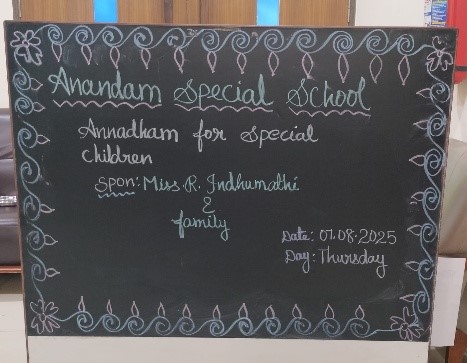 Anandam Special School
Annadham for special
children
Spon: Miss. R. Indhumathi
&
family
Date: 07.08.2025
Day: Thursday